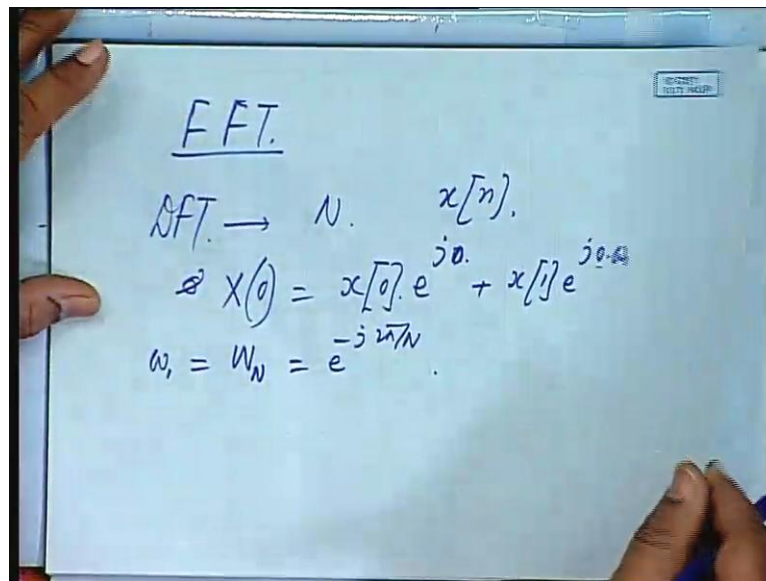 FFT.
DFT. → N. x[n].
X(0) = x[0]. e^{j0.} + x[1] e^{j0.}
ω₁ = W_N = e^{-j2π/N}.